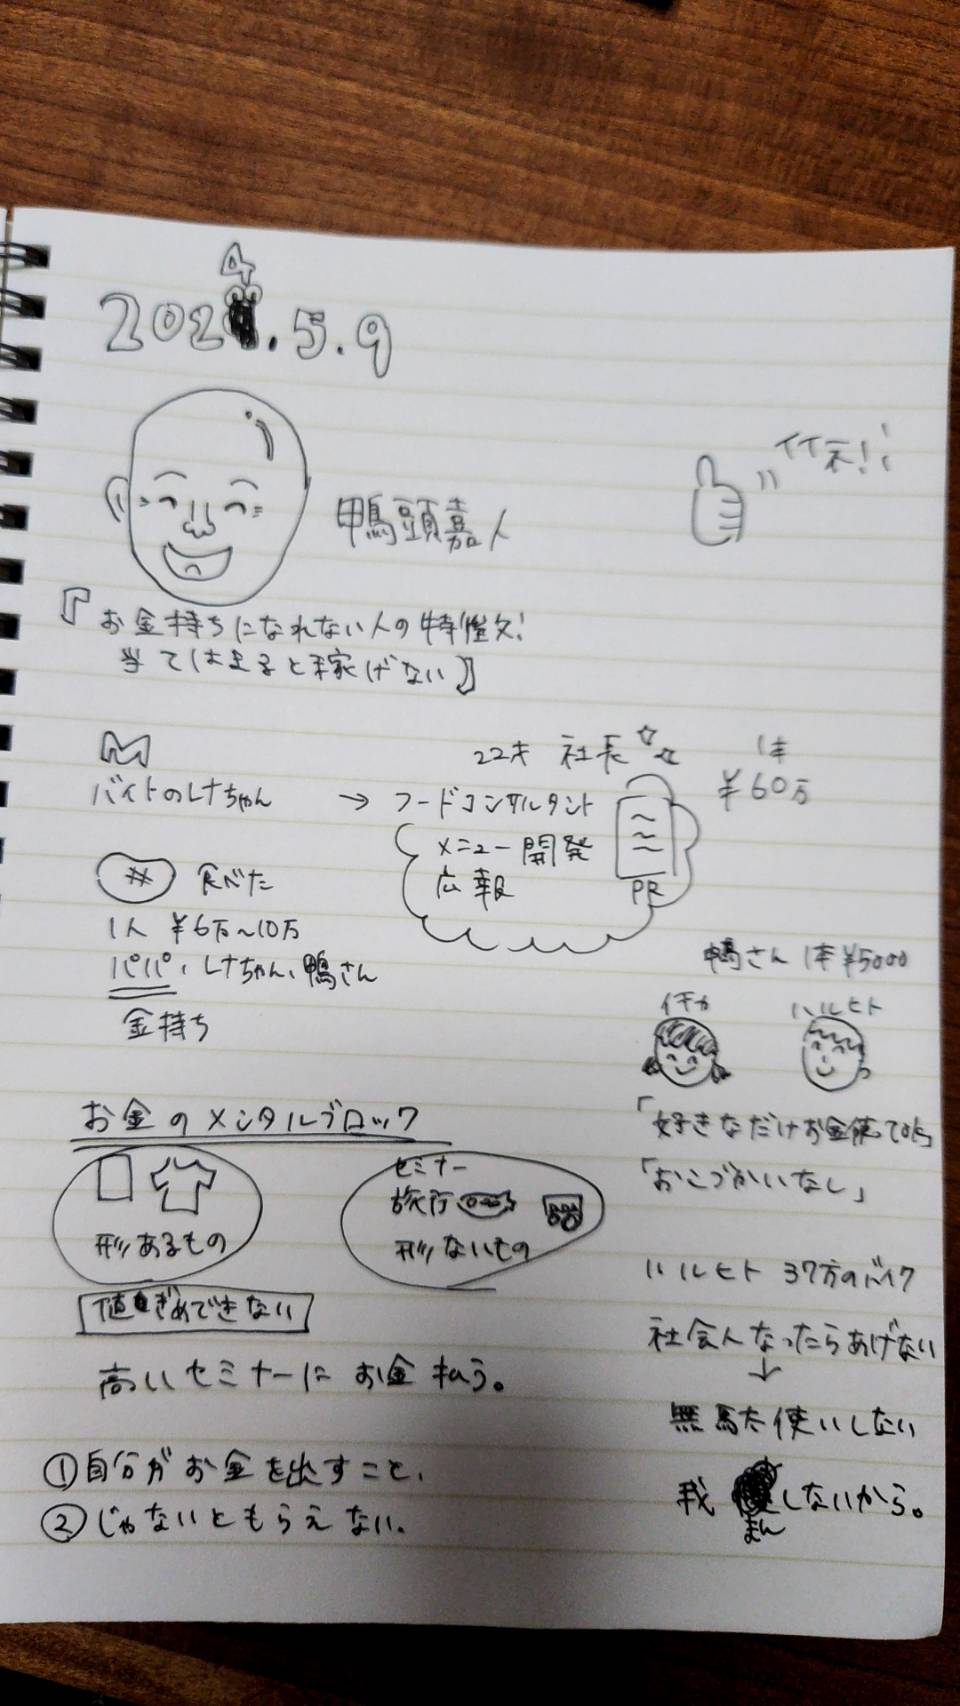 2024.5.9
イイネ!!
鴨頭嘉人
『お金持ちになれない人の特徴!
当てはまると稼げない』
M
バイトのレナちゃん
→
22才 社長
フードコンサルタント
メニュー開発
広報
PR
1本
¥60万
食べた
1人 ¥6万~10万
パパ、レナちゃん、鴨さん
金持ち
鴨さん 1本¥5000
イチカ
ハルヒト
「好きなだけお金使ってOK」
「おこづかいなし」
ハルヒト 37万のバイク
社会人なったらあげない
↓
無駄使いしない
我まんしないから。
お金のメンタルブロック
形あるもの
セミナー
旅行
形ないもの
値ぎめできない
高いセミナーにお金払う。
①自分がお金を出すこと、
②じゃないともらえない。